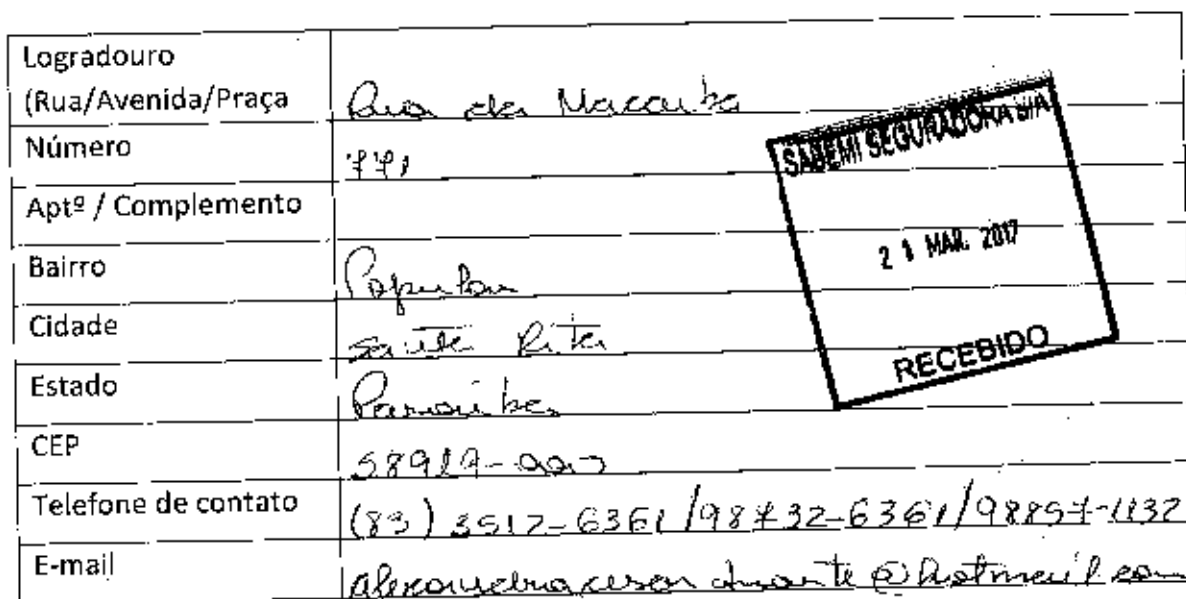 Logradouro
(Rua/Avenida/Praça Rua da Macaiba
Número 771
Aptº / Complemento
Bairro Popular
Cidade Santa Rita
Estado Paraiba
CEP
Telefone de contato (83) 3512-6361/98732-6361/98857-1132
E-mail @hotmail.com
SABEMI SEGURADORA S/A
21 MAR. 2017
RECEBIDO